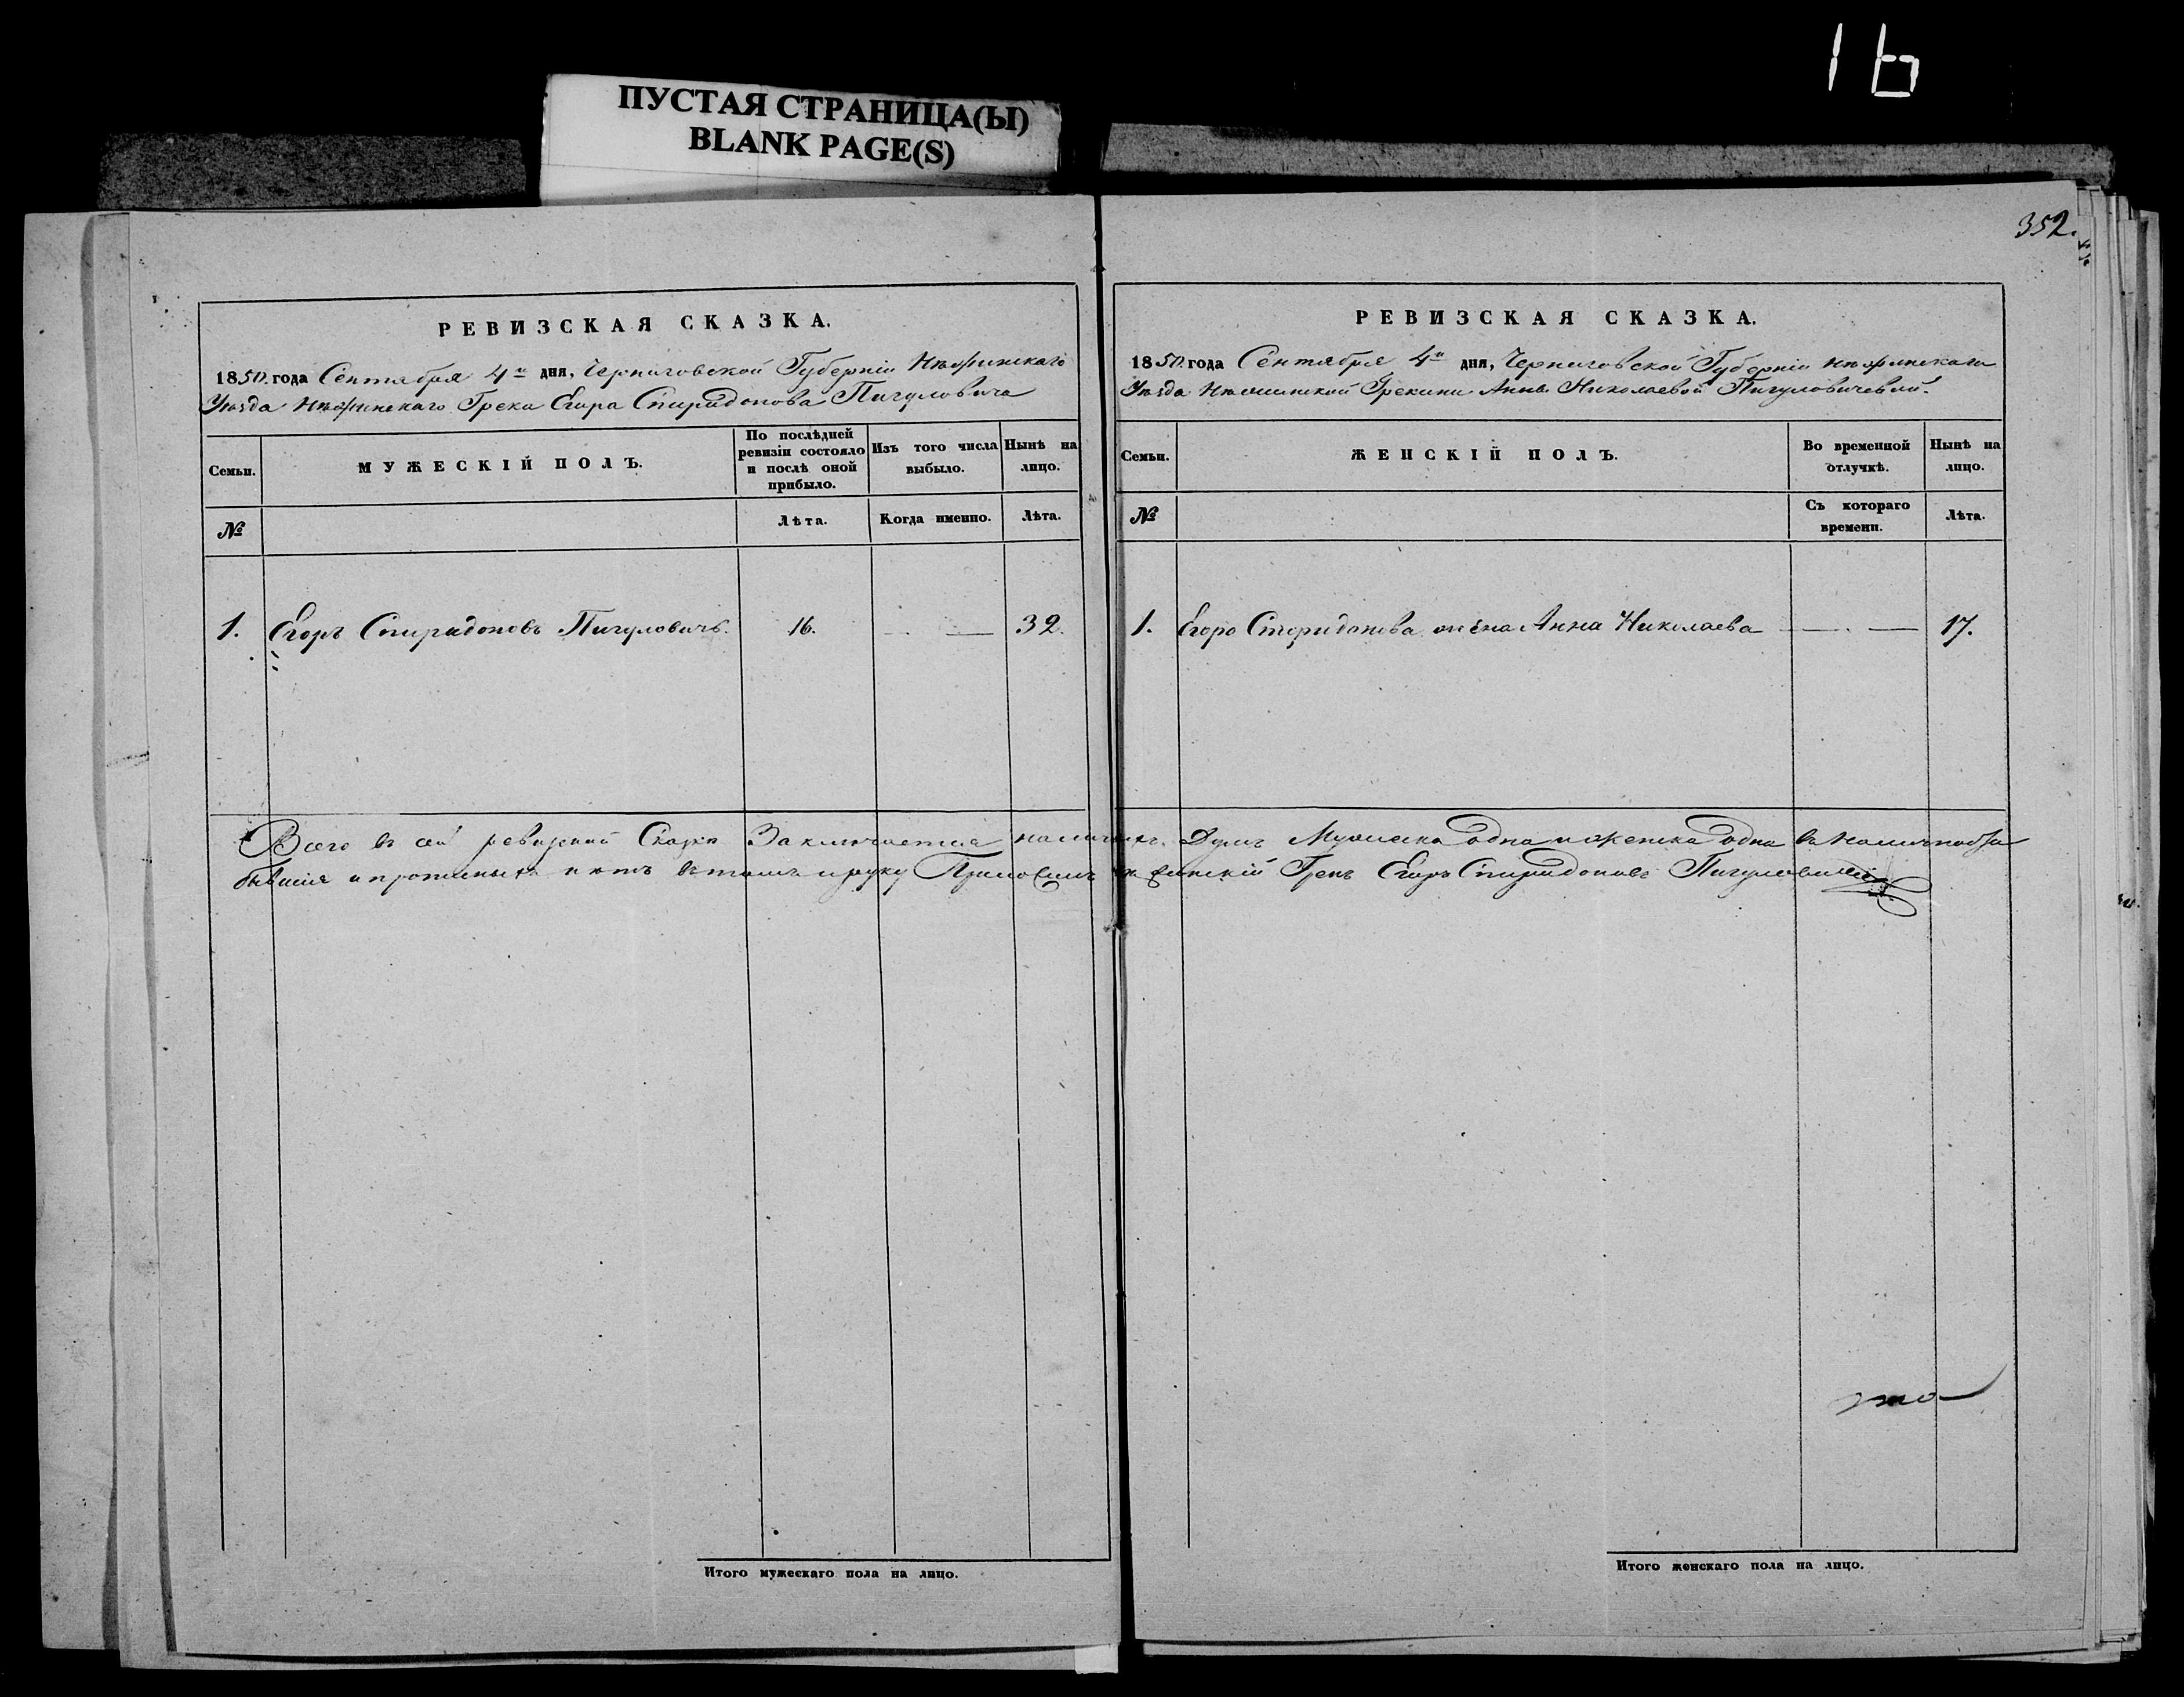 16
ПУСТАЯ СТРАНИЦА(Ы)
BLANK PAGE(S)
352.
РЕВИЗСКАЯ СКАЗКА.
1850. года Сентября 4го дня, Черниговской Губерніи Нѣжинскаго
Уѣзда Нѣжинскаго Грека Егора Спиридонова Пигуловича
Семьи.
МУЖЕСКІЙ ПОЛЪ.
По послѣдней ревизіи состояло и послѣ оной прибыло.
Изъ того числа выбыло.
Нынѣ на лицо.
№
Лѣта.
Когда именно.
Лѣта.
1. Егоръ Спиридоновъ Пигуловичь. 16. — — 32.
РЕВИЗСКАЯ СКАЗКА.
1850. года Сентября 4го дня, Черниговской Губерніи Нѣжинскаго
Уѣзда Нѣжинской Грекини Анны Николаевой Пигуловичевой.
Семьи.
ЖЕНСКІЙ ПОЛЪ.
Во временной отлучкѣ.
Нынѣ на лицо.
№
Съ котораго времени.
Лѣта.
1. Егора Спиридонова жена Анна Николаева — — 17.
Всего въ сей ревизкой Сказки Заключается наличныхъ Душъ Мужеска одна и женска одна
нѣтъ въ томъ и руку Приложилъ Нѣжинскій Грекъ Егоръ Спиридоновъ Пигуловичь
Итого мужескаго пола на лицо.
Итого женскаго пола на лицо.